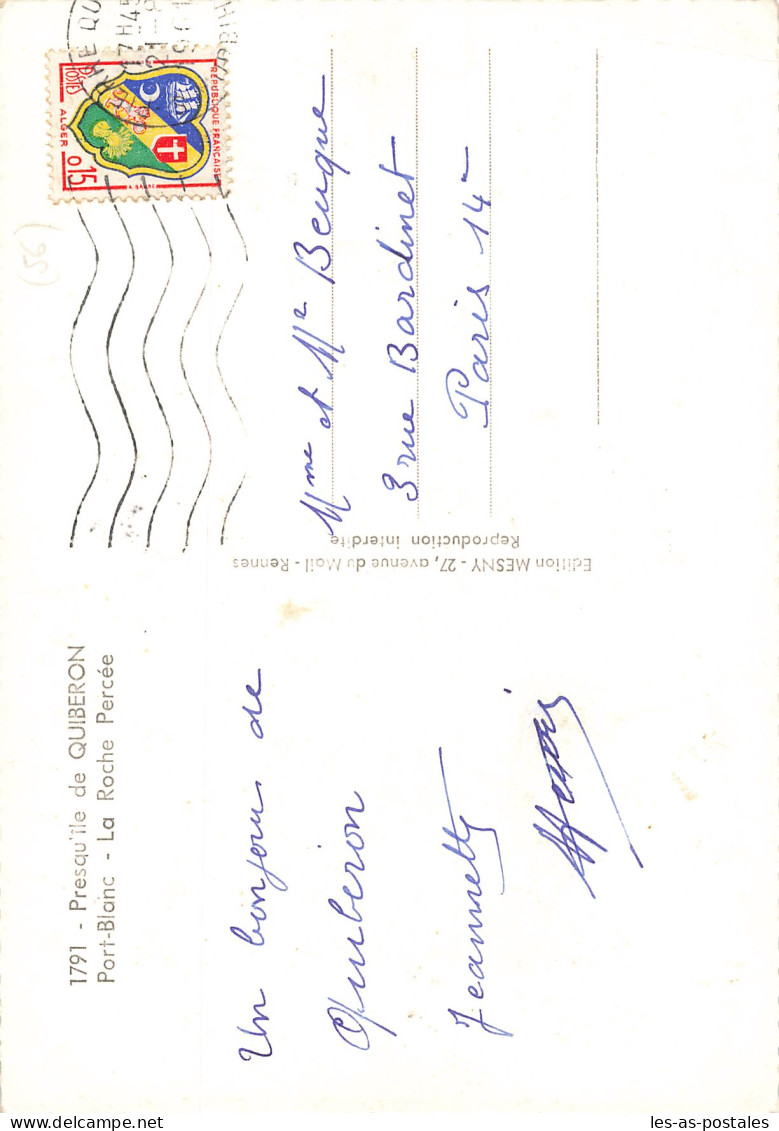 1791 - Presqu'île de QUIBERON
Port-Blanc - La Roche Percée
Un bonjour de
Quiberon
Jeannette
Henri
Edition MESNY - 27, avenue du Mail - Rennes
Reproduction interdite
RÉPUBLIQUE FRANÇAISE
POSTES
ALGER
0,15
17H45
Mme et Mr Beuque
3 rue Bardinet
Paris 14
(56)
les-as-postales